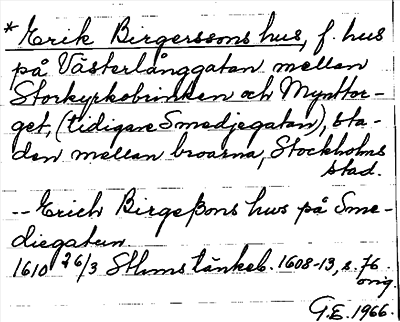 * Erik Birgerssons hus, f. hus
på Västerlånggatan mellan
Storkyrkobrinken och Mynttor-
get, (tidigare Smedjegatan), sta-
den mellan broarna, Stockholms
stad.
-- Erich Birgeßons hus på Sme-
diegatun
1610 26/3 Sthms tänkeb. 1608-13, s. 76
orig.
G.E. 1966.